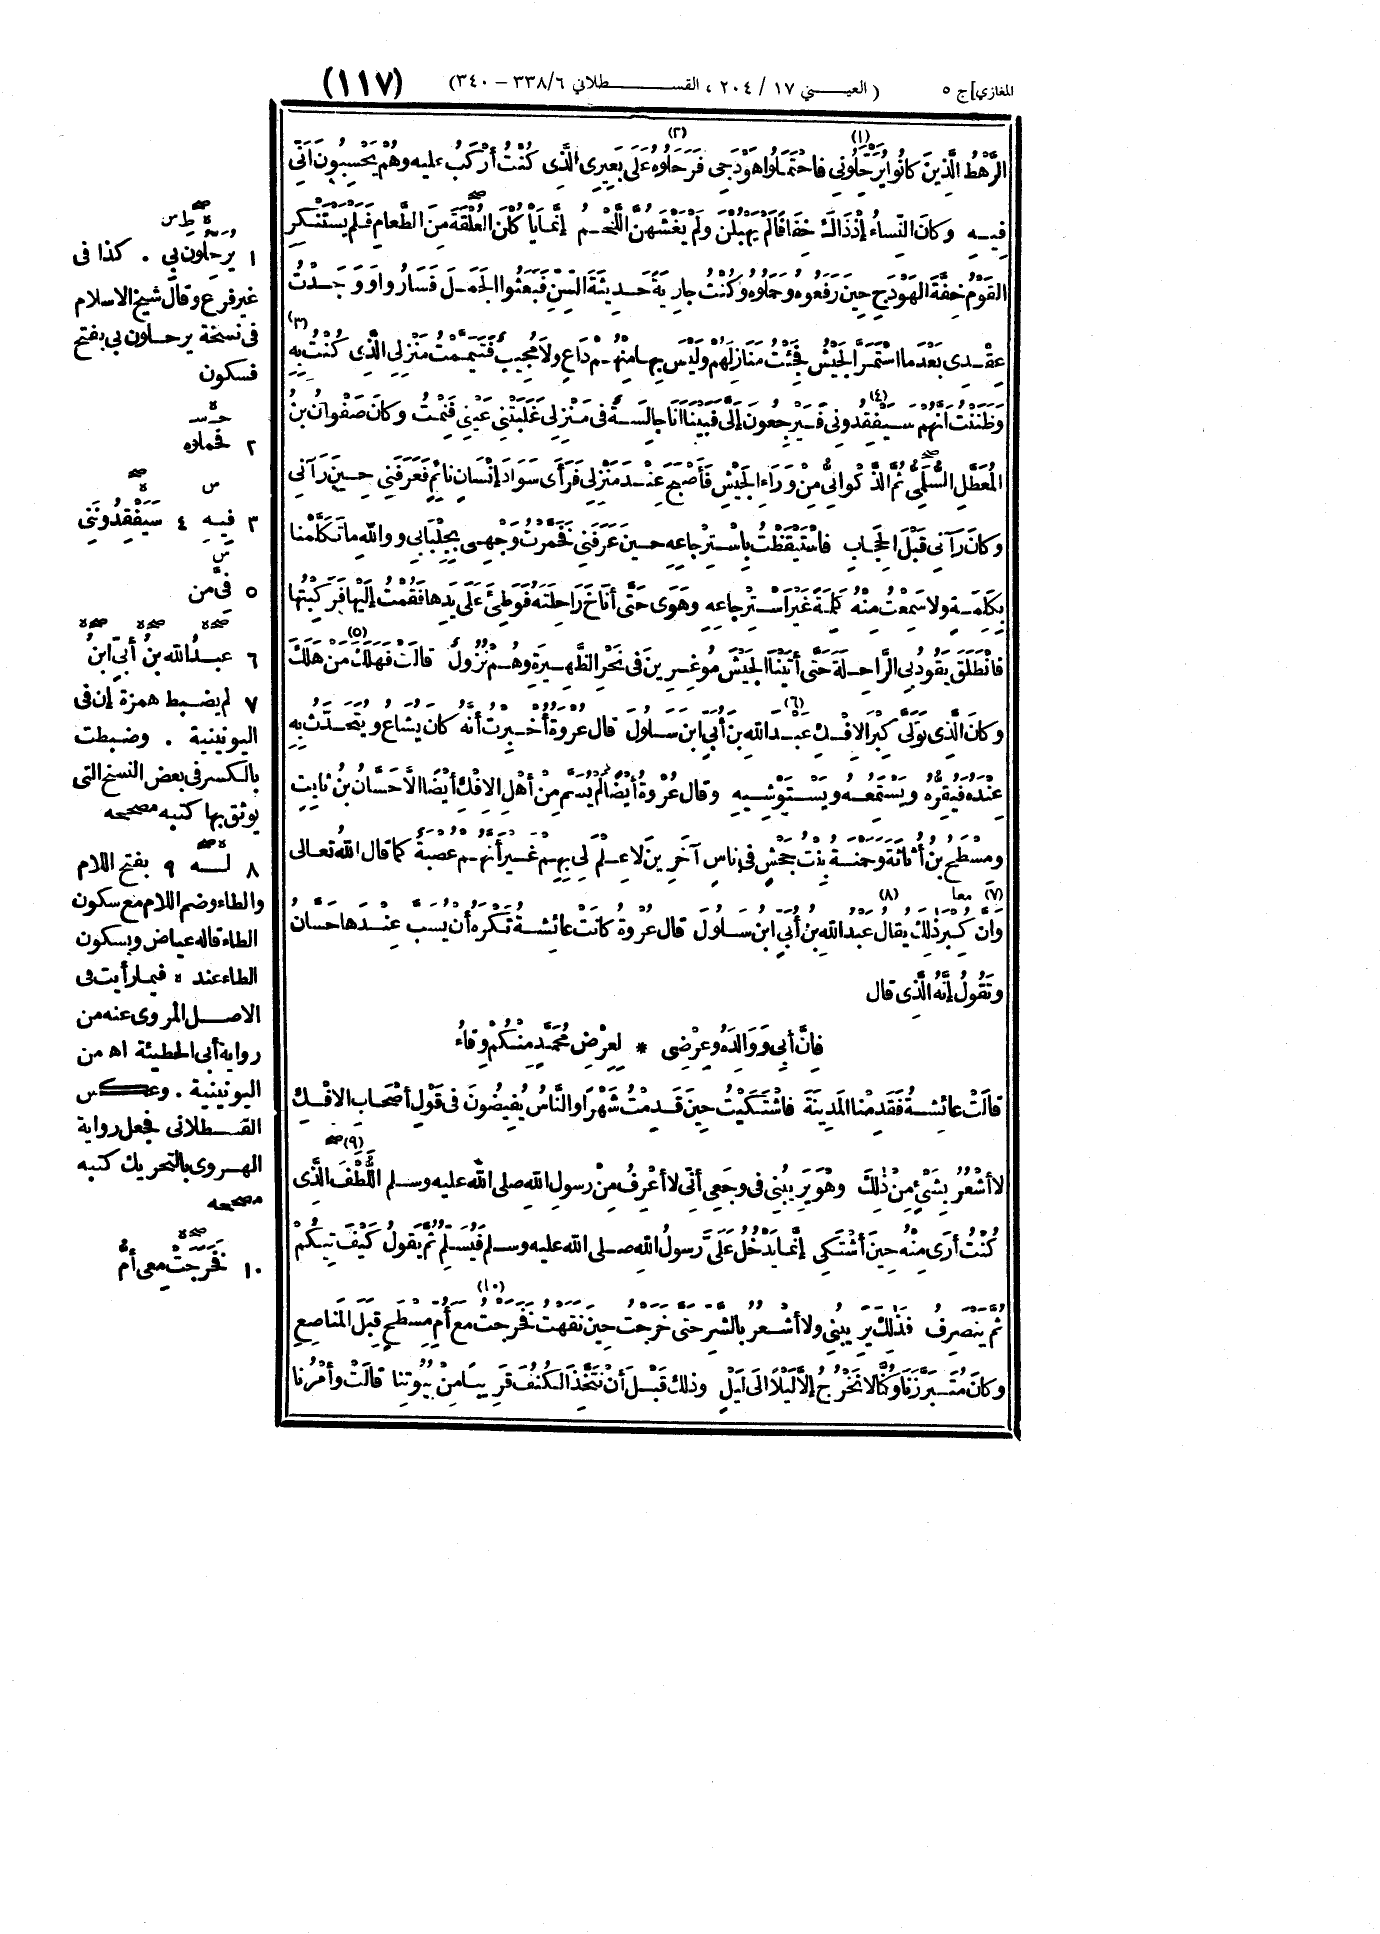 المغازي] ج ٥ (العيـــني ١٧ / ٢٠٤ ، القســـطلاني ٦/ ٣٣٨ – ٣٤٠) (١١٧)
الرَّهْطُ الَّذِينَ كَانُوا يُرَحِّلُونِي (١) فَاحْتَمَلُوا هَوْدَجِي فَرَحَلُوهُ (٢) عَلَى بَعِيرِي الَّذِي كُنْتُ أَرْكَبُ عليه وهُمْ يَحْسِبُونَ أَنِّي
فِيهِ وكَانَ النِّسَاءُ إِذْ ذَاكَ خِفَافًا لَمْ يَهْبُلْنَ ولَمْ يَغْشَهُنَّ اللَّحْمُ إِنَّمَا يَأْكُلْنَ العُلْقَةَ مِنَ الطَّعَامِ فَلَمْ يَسْتَنْكِرِ
القَوْمُ خِفَّةَ الهَوْدَجِ حِينَ رَفَعُوهُ وحَمَلُوهُ وكُنْتُ جَارِيَةً حَدِيثَةَ السِّنِّ فَبَعَثُوا الجَمَلَ فَسَارُوا ووَجَدْتُ
عِقْدِي بَعْدَ مَا اسْتَمَرَّ الجَيْشُ فَجِئْتُ مَنَازِلَهُمْ ولَيْسَ بِهَا مِنْهُمْ دَاعٍ ولَا مُجِيبٌ فَتَيَمَّمْتُ مَنْزِلِي الَّذِي كُنْتُ بِهِ (٣)
وظَنَنْتُ أَنَّهُمْ سَيَفْقِدُونِي (٤) فَيَرْجِعُونَ إِلَيَّ فَبَيْنَا أَنَا جَالِسَةٌ فِي مَنْزِلِي غَلَبَتْنِي عَيْنِي فَنِمْتُ وكَانَ صَفْوَانُ بنُ
المُعَطَّلِ السُّلَمِيُّ ثُمَّ الذَّكْوَانِيُّ مِنْ وَرَاءِ الجَيْشِ فَأَصْبَحَ عِنْدَ مَنْزِلِي فَرَأَى سَوَادَ إِنْسَانٍ نَائِمٍ فَعَرَفَنِي حِينَ رَآنِي
وكَانَ رَآنِي قَبْلَ الحِجَابِ فَاسْتَيْقَظْتُ بِاسْتِرْجَاعِهِ حِينَ عَرَفَنِي فَخَمَّرْتُ وَجْهِي بِجِلْبَابِي وواللهِ مَا تَكَلَّمْنَا
بِكَلِمَةٍ ولا سَمِعْتُ مِنْهُ كَلِمَةً غَيْرَ اسْتِرْجَاعِهِ وهَوَى حَتَّى أَنَاخَ رَاحِلَتَهُ فَوَطِئَ عَلَى يَدِهَا فَقُمْتُ إِلَيْهَا فَرَكِبْتُهَا
فَانْطَلَقَ يَقُودُ بِي الرَّاحِلَةَ حَتَّى أَتَيْنَا الجَيْشَ مُوغِرِينَ فِي نَحْرِ الظَّهِيرَةِ وهُمْ نُزُولٌ قَالَتْ فَهَلَكَ (٥) مَنْ هَلَكَ
وكَانَ الَّذِي تَوَلَّى كِبْرَ الإفْكِ عَبْدَ اللهِ (٦) بنَ أُبَيٍّ ابنَ سَلُولَ قَالَ عُرْوَةُ أُخْبِرْتُ أَنَّهُ كَانَ يُشَاعُ ويُتَحَدَّثُ بِهِ
عِنْدَهُ فَيُقِرُّهُ ويَسْتَمِعُهُ ويَسْتَوْشِيهِ وقَالَ عُرْوَةُ أَيْضًا لَمْ يُسَمَّ مِنْ أَهْلِ الإفْكِ أَيْضًا إلَّا حَسَّانُ بنُ ثَابِتٍ
ومِسْطَحُ بنُ أُثَاثَةَ وحَمْنَةُ بِنْتُ جَحْشٍ فِي نَاسٍ آخَرِينَ لَا عِلْمَ لِي بِهِمْ غَيْرَ أَنَّهُمْ عُصْبَةٌ كَمَا قَالَ اللهُ تعالى
وأَنَّ (٧) كِبْرَ معا ذَلِكَ يُقَالُ (٨) عَبْدُ اللهِ بنُ أُبَيٍّ ابنُ سَلُولَ قَالَ عُرْوَةُ كَانَتْ عَائِشَةُ تَكْرَهُ أَنْ يُسَبَّ عِنْدَهَا حَسَّانُ
وتَقُولُ إِنَّهُ الَّذِي قَالَ
فَإِنَّ أَبِي ووَالِدَهُ وعِرْضِي * لِعِرْضِ مُحَمَّدٍ مِنْكُمْ وِقَاءُ
قَالَتْ عَائِشَةُ فَقَدِمْنَا المَدِينَةَ فَاشْتَكَيْتُ حِينَ قَدِمْتُ شَهْرًا والنَّاسُ يُفِيضُونَ فِي قَوْلِ أَصْحَابِ الإفْكِ
لا أَشْعُرُ بِشَيْءٍ مِنْ ذَلِكَ وهْوَ يَرِيبُنِي فِي وَجَعِي أَنِّي لا أَعْرِفُ مِنْ رسولِ اللهِ صلى الله عليه وسلم اللُّطْفَ (٩) الَّذِي
كُنْتُ أَرَى مِنْهُ حِينَ أَشْتَكِي إِنَّمَا يَدْخُلُ عَلَيَّ رسولُ اللهِ صلى الله عليه وسلم فَيُسَلِّمُ ثُمَّ يَقُولُ كَيْفَ تِيكُمْ
ثُمَّ يَنْصَرِفُ فَذَلِكَ يَرِيبُنِي ولا أَشْعُرُ بِالشَّرِّ حَتَّى خَرَجْتُ حِينَ نَقَهْتُ فَخَرَجْتُ (١٠) مَعَ أُمِّ مِسْطَحٍ قِبَلَ المَنَاصِعِ
وكَانَ مُتَبَرَّزَنَا وكُنَّا لا نَخْرُجُ إِلَّا لَيْلًا إِلَى لَيْلٍ وذلك قَبْلَ أَنْ نَتَّخِذَ الكُنُفَ قَرِيبًا مِنْ بُيُوتِنَا قَالَتْ وأَمْرُنَا
١ يُرَحِّلُونَ بِي . كذا فى
غير فرع وقال شيخ الاسلام
فى نسخة يرحلون بى بفتح
فسكون
٢ فحملوه
٣ فِيهِ ٤ سَيَفْقِدُونَنِي
٥ فِيَّ مَن
٦ عبدُ الله بنُ أُبَيٍّ ابنُ
٧ لم يضبط همزة إن فى
اليونينية . وضبطت
بالكسر فى بعض النسخ التى
يوثق بها كتبه مصححه
٨ لـــه ٩ بفتح اللام
والطاء وضم اللام مع سكون
الطاء قاله عياض وبسكون
الطاء عند ه فيما رأيت فى
الاصل المروى عنه من
رواية أبى الحطيئة اه من
اليونينية . وعكس
القسطلانى فجعل رواية
الهروى بالتحريك كتبه
مصححه
١٠ فَخَرَجَتْ معى أُمُّ